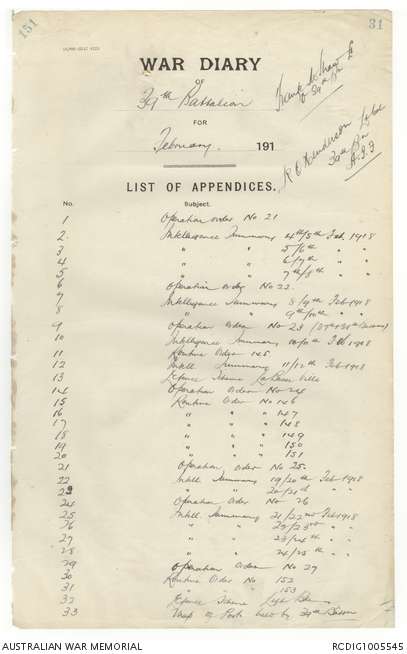 151
31
WAR DIARY
of
39th Battalion
FOR
February. 191
39th Bn
R O Henderson Lt Col
39th Bn
A.I.F
LIST OF APPENDICES.
No. Subject.
1 Operation order No 21
2 Intelligence Summary 4th/5th Feb. 1918
3 " " 5/6th " "
4 " " 6/7th " "
5 " " 7th/8th " "
6 Operation order No 22.
7 Intelligence Summary 8/9th Feb 1918
8 " " 9th/10th " "
9 Operation Order No 23
10 Intelligence Summary 10/11th Feb 1918
11 Routine Order 145
12 Intell. Summary 11/12th Feb 1918
13 Defence Scheme
14 Operation Order No 24
15 Routine Order No 146
16 " " " 147
17 " " " 148
18 " " " 149
19 " " " 150
20 " " " 151
21 Operation Order No 25.
22 Intell. Summary 19/20th Feb 1918
23 " " 20/21st " "
24 Operation Order No 26
25 Intell. Summary 21/22nd Feb 1918
26 " " 22/23rd " "
27 " " 23/24th " "
28 " " 24/25th " "
29 Operation Order No 27
30 Routine Order No 152
31 " " " 153
32 Defence Scheme
33 Map of Posts held by 39th Battn
AUSTRALIAN WAR MEMORIAL
RCDIG1005545